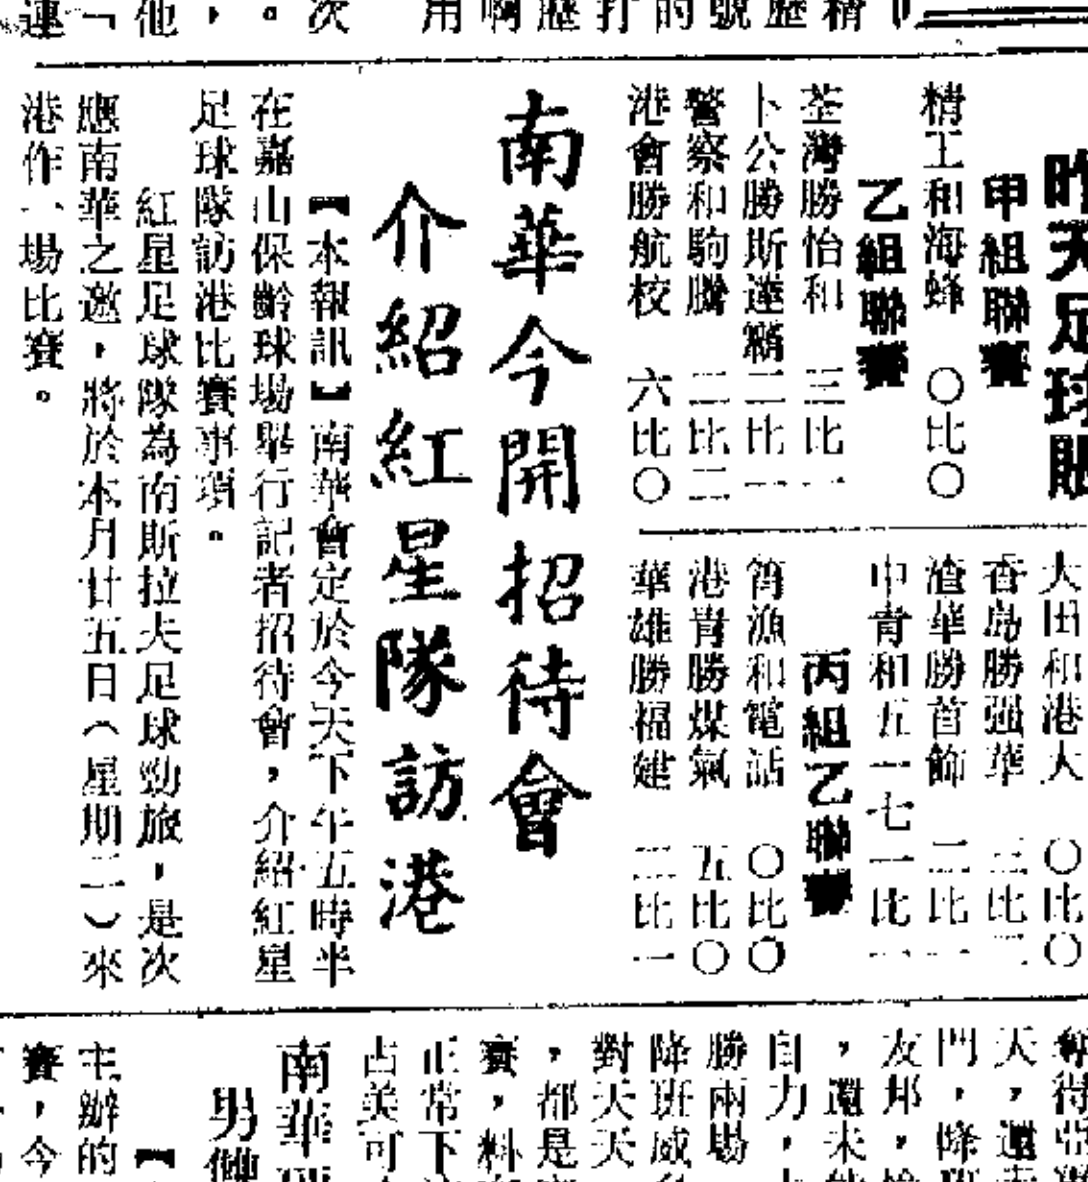 昨天足球賬
甲組聯賽
精工和海蜂 〇比〇
乙組聯賽
荃灣勝怡和 三比一
卜公勝斯達 二比一
警察和駒騰 二比二
港會勝航校 六比〇
大田和港大 〇比〇
香島勝强華 三比二
渣華勝首飾 二比一
中青和五一七 一比一
丙組乙聯賽
筲漁和電話 〇比〇
港青勝煤氣 五比〇
華雄勝福建 三比一
南華今開招待會
介紹紅星隊訪港
【本報訊】南華會定於今天下午五時半
在嘉山保齡球場舉行記者招待會,介紹紅星
足球隊訪港比賽事項。
紅星足球隊為南斯拉夫足球勁旅,是次
應南華之邀,將於本月廿五日(星期二)來
港作一場比賽。
友邦,
,還未
自力,
勝兩場
降班威
對天天
,都是
賽,料
正常下
占美可
南華
男
主辦的
賽,今